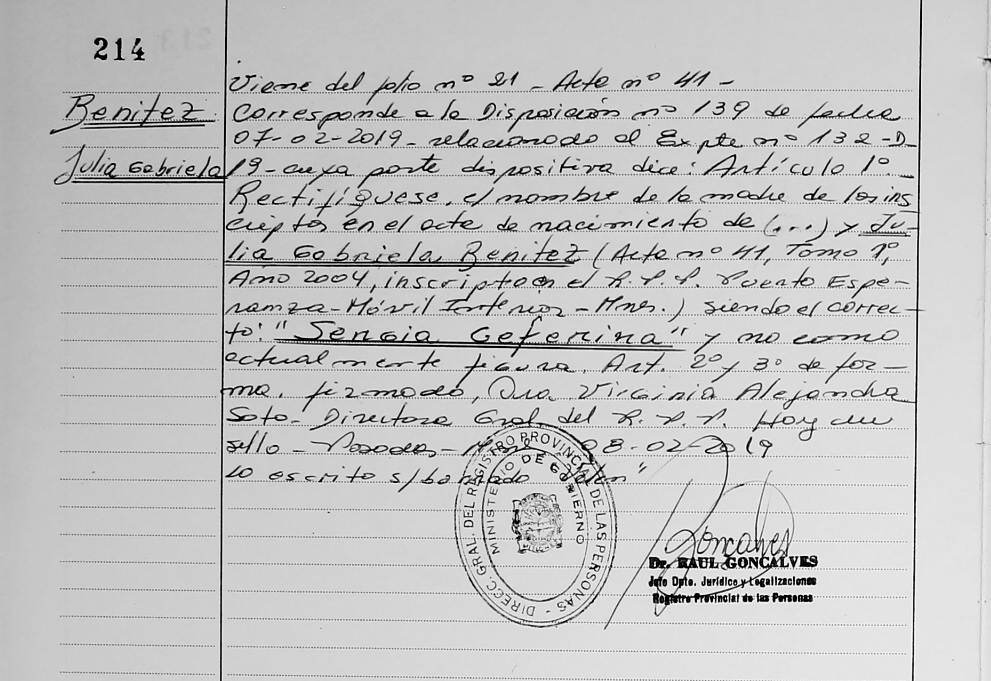 214
Benitez
Julia Gabriela
Viene del folio nº 21 - Acta nº 41 -
Corresponde a la Disposición nº 139 de fecha
07-02-2019 - relacionado al Expte nº 132-D-
19 - cuya parte dispositiva dice: Artículo 1º
Rectifíquese, el nombre de la madre de los ins
criptos en el acta de nacimiento de (...) y Ju-
lia Gabriela Benitez (Acta nº 41, Tomo 1º,
Año 2004, inscripto en el R.P.P. Puerto Espe-
ranza - Móvil Interior - Mnes.) siendo el correc-
to: "Sergia Ceferina" y no como
actualmente figura. Art. 2º y 3º de for-
ma. firmado, Dra. Virginia Alejandra
Soto - Directora Gral. del R.P.P. Hoy un
sello - Posadas - 08-02-2019
Lo escrito s/borrado
DIRECC. GRAL. DEL REGISTRO PROVINCIAL DE LAS PERSONAS -
MINISTERIO DE GOBIERNO
Goncalves
Dr. RAUL GONCALVES
Jefe Dpto. Jurídico y Legalizaciones
Registro Provincial de las Personas